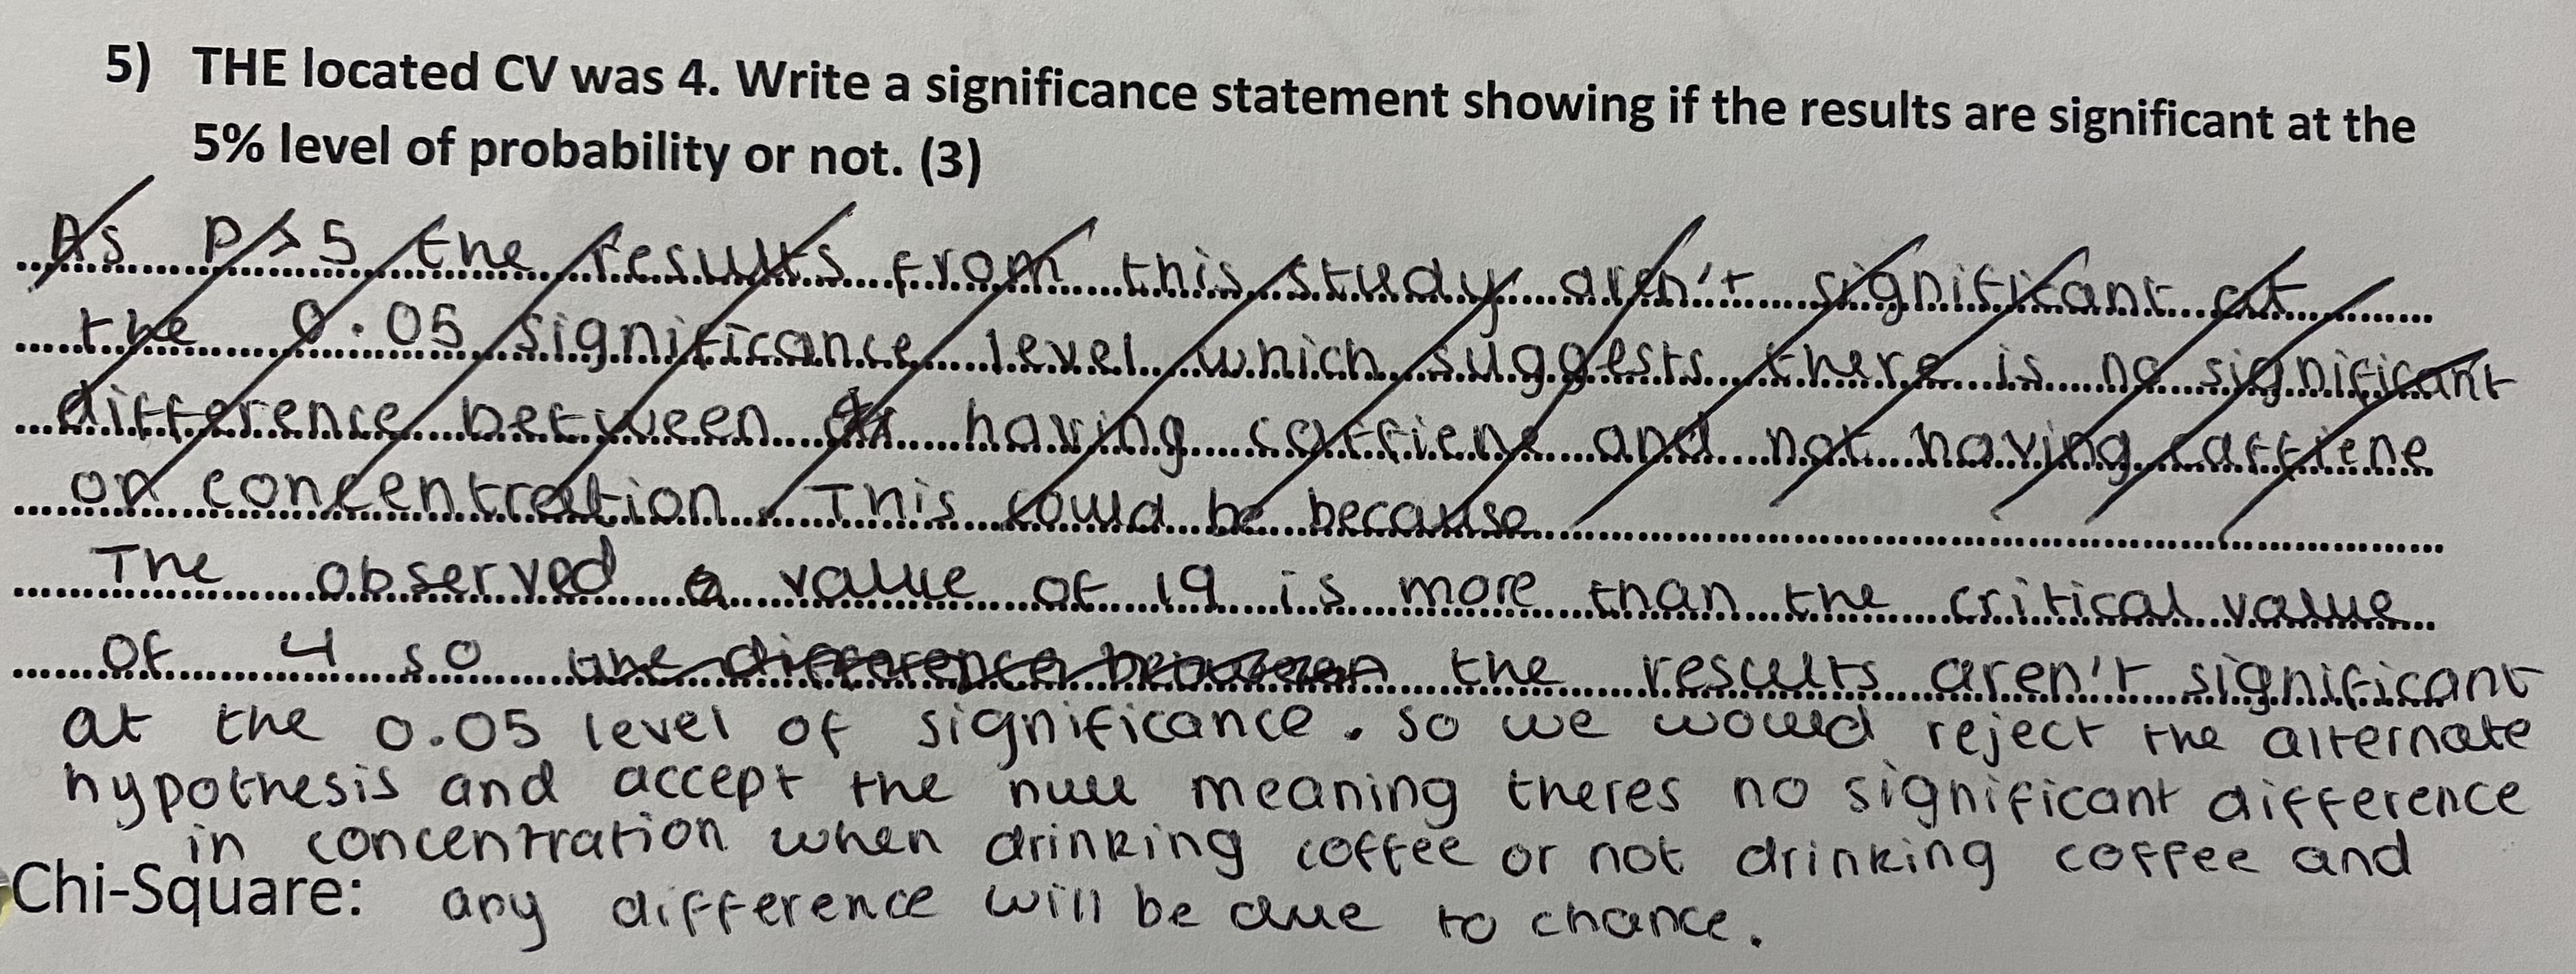 5) THE located CV was 4. Write a significance statement showing if the results are significant at the
5% level of probability or not. (3)
As P > 5 the results from this study aren't significant at
the 0.05 significance level which suggests there is no significant
difference between having caffiene and not having caffiene
on concentration. This could be because
The observed value of 19 is more than the critical value
of 4 so the difference between the results aren't significant
at the 0.05 level of significance. so we would reject the alternate
hypothesis and accept the null meaning theres no significant difference
in concentration when drinking coffee or not drinking coffee and
Chi-Square: any difference will be due to chance.